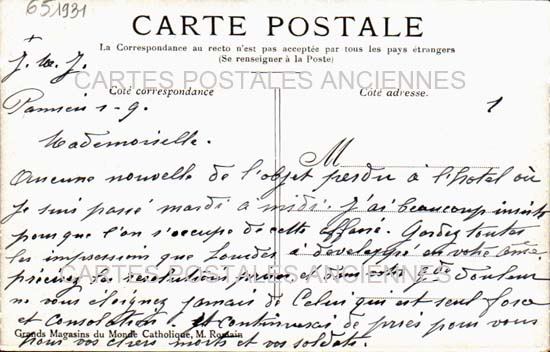 651931
CARTE POSTALE
La Correspondance au recto n'est pas acceptée par tous les pays étrangers
(Se renseigner à la Poste)
+
J. M. J.
CARTES POSTALES ANCIENNES
Côté correspondance
Côté adresse.
Pamiers 1-9.
1
Mademoiselle.
M
Aucune nouvelle de l'objet perdu à l'hôtel où
je suis passé mardi à midi. J'ai beaucoup insisté
pour que l'on s'occupe de cette affaire. Gardez toutes
les impressions que Lourdes a développé en votre âme,
CARTES POSTALES ANCIENNES
résolutions prises et que douleur
ne vous éloignez jamais de Celui qui est seul force
et consolation. Et continuerai de prier pour vous
Grands Magasins du Monde Catholique, M. Romain
pour vos chers morts et vos soldats.